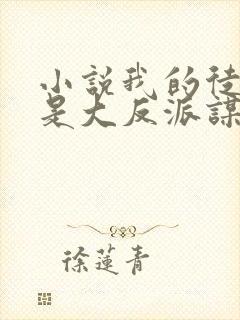 小說我的徒
是大反派謀
徐蓮青